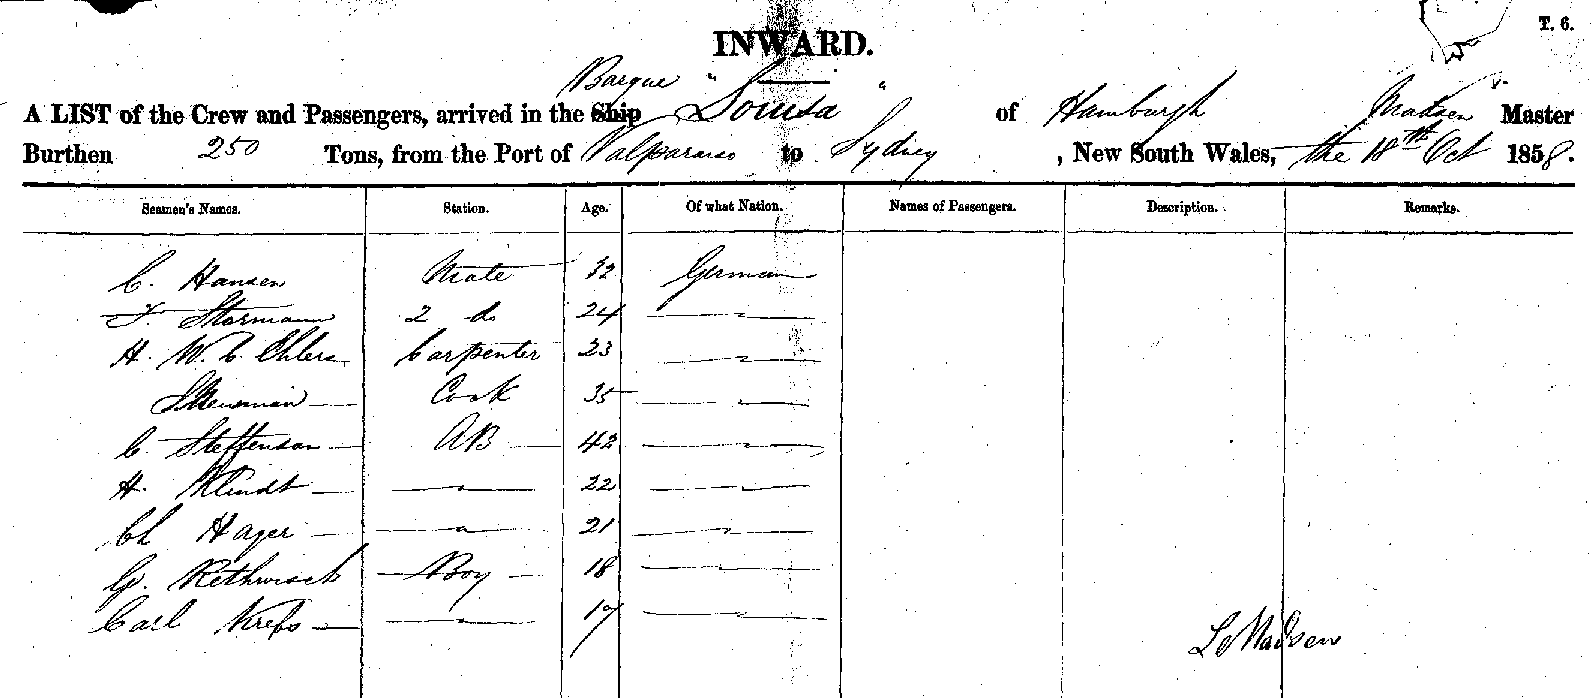 T. 6.
INWARD.
Barque "Louisa"
A LIST of the Crew and Passengers, arrived in the Ship of Hamburgh Madsen Master
Burthen 250 Tons, from the Port of Valparaiso to Sydney, New South Wales, the 18th Oct 1858.
Seamen's Names. Station. Age. Of what Nation. Names of Passengers. Description. Remarks.
C. Hansen Mate 32 German
F. Stormann 2 do 24 — " —
H. W. C. Ehlers Carpenter 23 — " —
Cook 35 — " —
C. Steffenson — AB — 42 — " —
H. Klindt — — " — 22 — " —
Ch Hager — — " — 21 — " —
G. Rethwisch — Boy — 18 — " —
Carl Krebs — — " — 17 — " —
Madsen